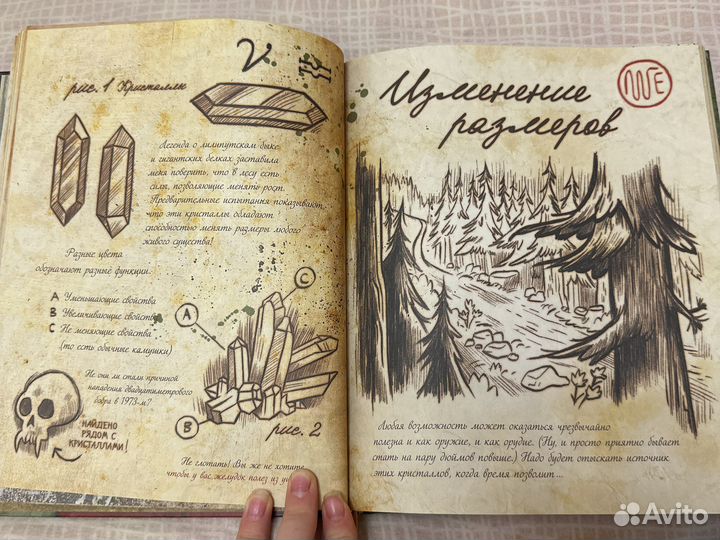 рис. 1 Кристаллы
Легенда о лилипутском быке
и гигантских белках заставила
меня поверить, что в лесу есть
силы, позволяющие менять рост.
Предварительные испытания показывают,
что эти кристаллы обладают
способностью менять размеры любого
живого существа!
Разные цвета
обозначают разные функции.
A Уменьшающие свойства
B Увеличивающие свойства
C Не меняющие свойства
(то есть обычные камушки)
A
C
B
рис. 2
Не они ли стали причиной
нападения двадцатиметрового
бобра в 1973-м?
НАЙДЕНО
РЯДОМ С
КРИСТАЛЛАМИ!
Не глотать! Вы же не хотите,
чтобы у вас желудок полез из
Изменение
размеров
Любая возможность может оказаться чрезвычайно
полезна и как оружие, и как орудие. (Ну, и просто приятно бывает
стать на пару дюймов повыше.) Надо будет отыскать источник
этих кристаллов, когда время позволит...
Avito